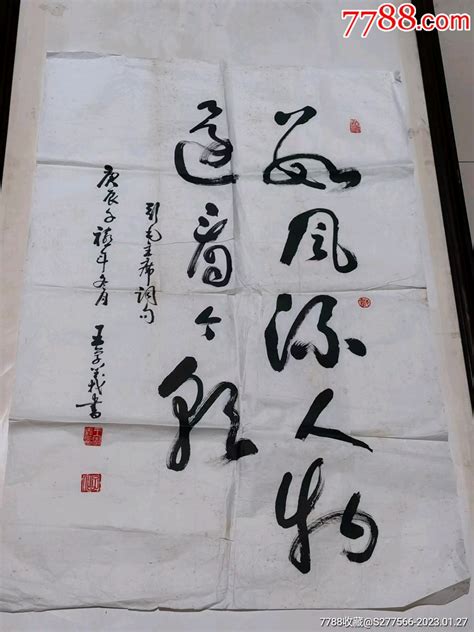 7788.com
数风流人物
还看今朝
引毛主席词句
庚辰千禧年冬月 王学义书
7788收藏@S277566-2023.01.27